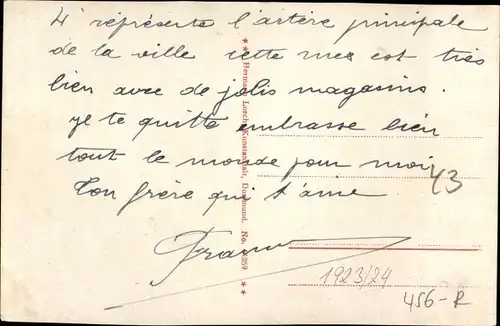 4 représente l'artère principale
de la ville cette rue est très
bien avec de jolis magasins.
je te quitte embrasse bien
tout le monde pour moi
Ton frère qui t'aime
43
1923/24
456-R
** Hermann Lorch, Kunstanstalt, Dortmund. No. 359 **